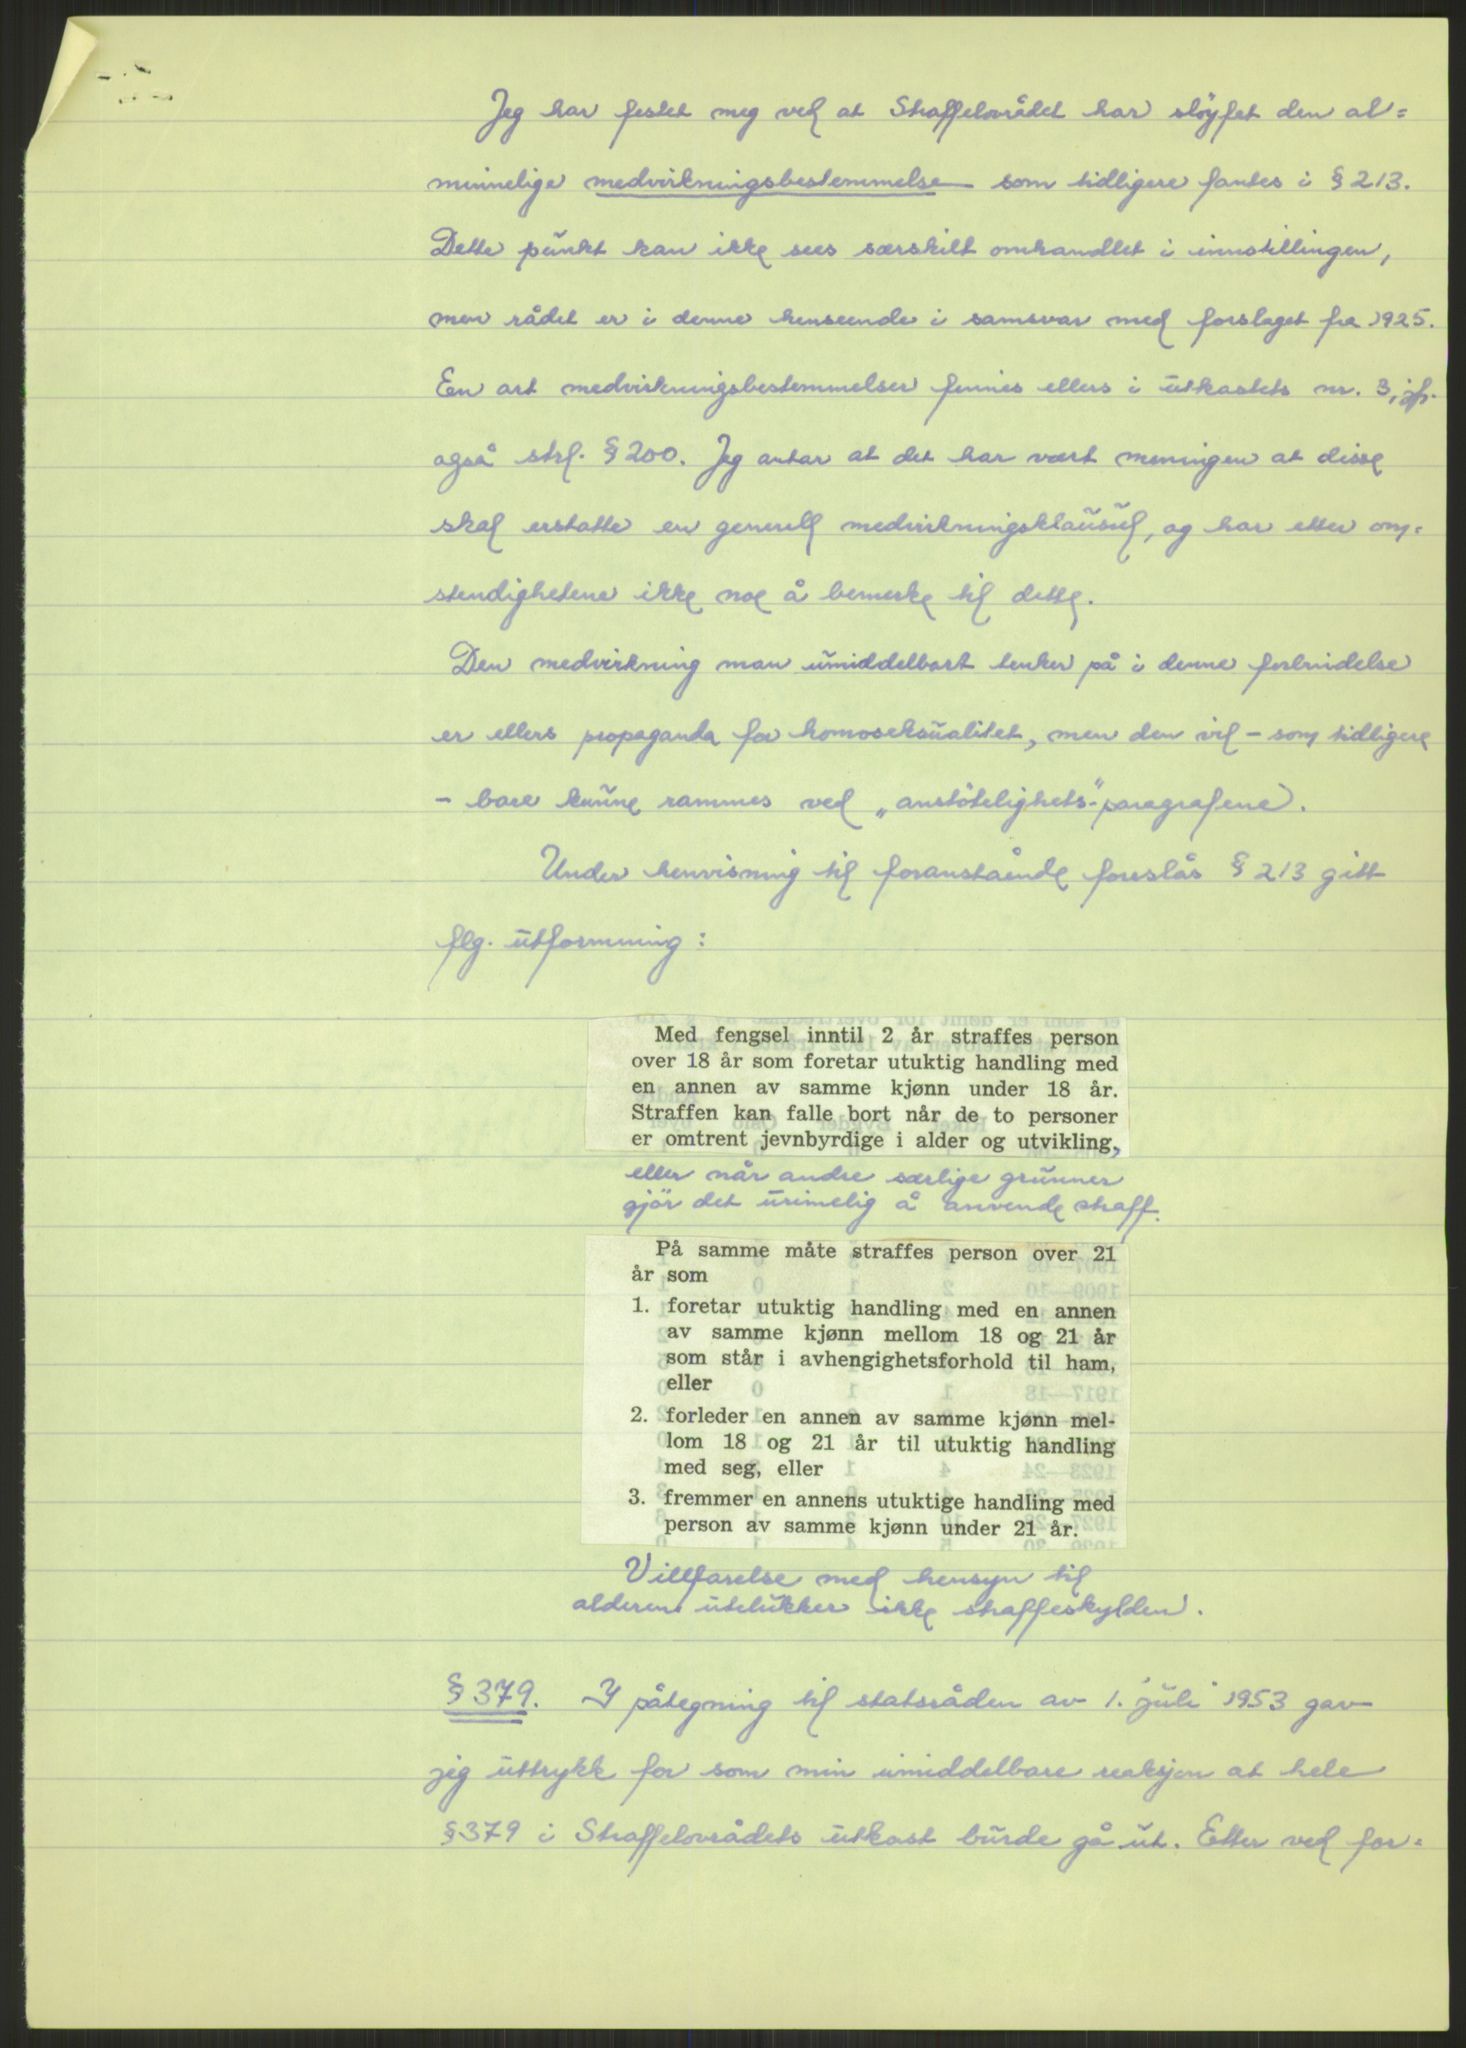 Jeg har festet meg ved at Straffelovrådet har sløyfet den al=
minnelige medvirkningsbestemmelse som tidligere fantes i § 213.
Dette punkt kan ikke sees særskilt omhandlet i innstillingen,
men rådet er i denne henseende i samsvar med forslaget fra 1925.
En art medvirkningsbestemmelser finnes ellers i utkastets nr. 3, jfr.
også strl. § 200. Jeg antar at det har vært meningen at disse
skal erstatte en generell medvirkningsklausul, og har etter om=
stendighetene ikke noe å bemerke til dette.
Den medvirkning man umiddelbart tenker på i denne forbindelse
er ellers propaganda for homoseksualitet, men den vil - som tidligere
- bare kunne rammes ved „anstötelighets-"paragrafene.
Under henvisning til foranstående foreslås § 213 gitt
flg. utformning:
Med fengsel inntil 2 år straffes person
over 18 år som foretar utuktig handling med
en annen av samme kjønn under 18 år.
Straffen kan falle bort når de to personer
er omtrent jevnbyrdige i alder og utvikling,
eller når andre særlige grunner
gjör det urimelig å anvende straff.
På samme måte straffes person over 21
år som
1. foretar utuktig handling med en annen
av samme kjønn mellom 18 og 21 år
som står i avhengighetsforhold til ham,
eller
2. forleder en annen av samme kjønn mel-
lom 18 og 21 år til utuktig handling
med seg, eller
3. fremmer en annens utuktige handling med
person av samme kjønn under 21 år.
Villfarelse med hensyn til
alderen utelukker ikke straffeskylden.
§ 379. I påtegning til statsråden av 1. juli 1953 gav
jeg uttrykk for som min umiddelbare reaksjon at hele
§ 379 i Straffelovrådets utkast burde gå ut. Etter ved for=